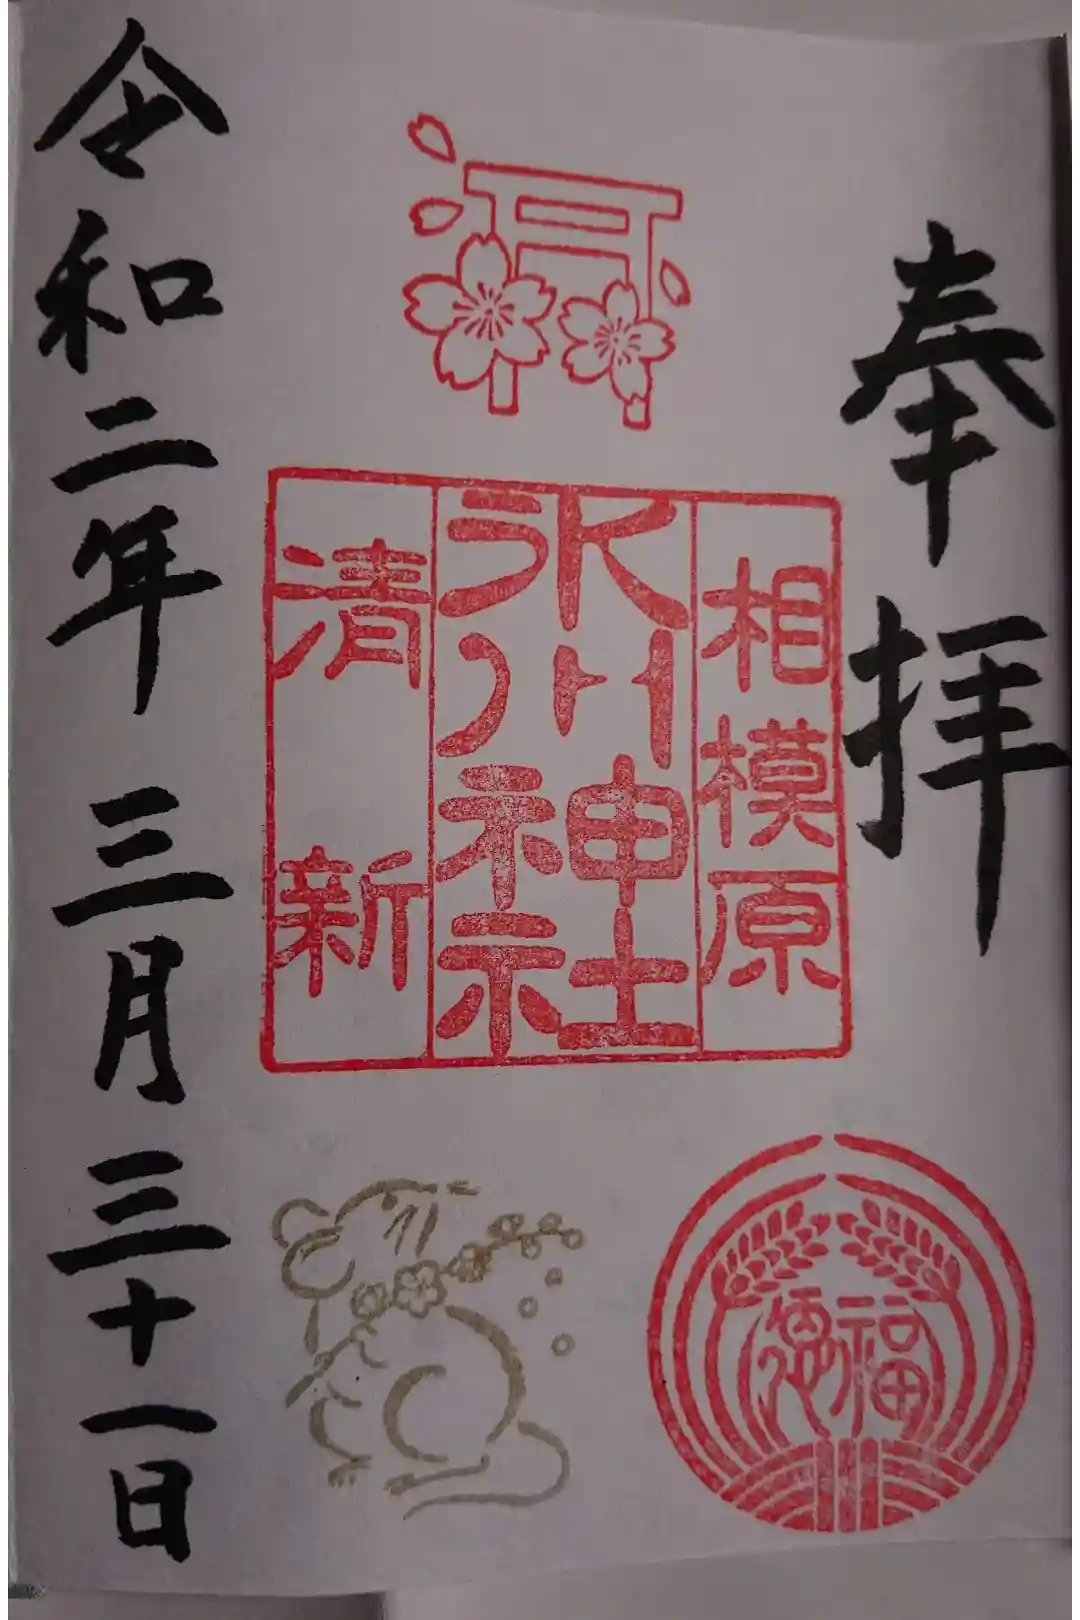 奉拝
相模原
氷川神社
清新
福徳
令和二年三月三十一日